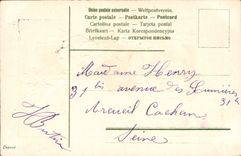 Union postale universelle — Weltpostverein.
Carte postale — Postkarte — Postcard
Cartolina postale — Tarjeta postal
Briefkaart — Karta Korespondencyjna
Levelező-Lap — ОТКРЫТОЕ ПИСЬМО
Madame Henry
31 bis avenue des Lumières
31 b
Arcueil Cachan
Seine
Déposé